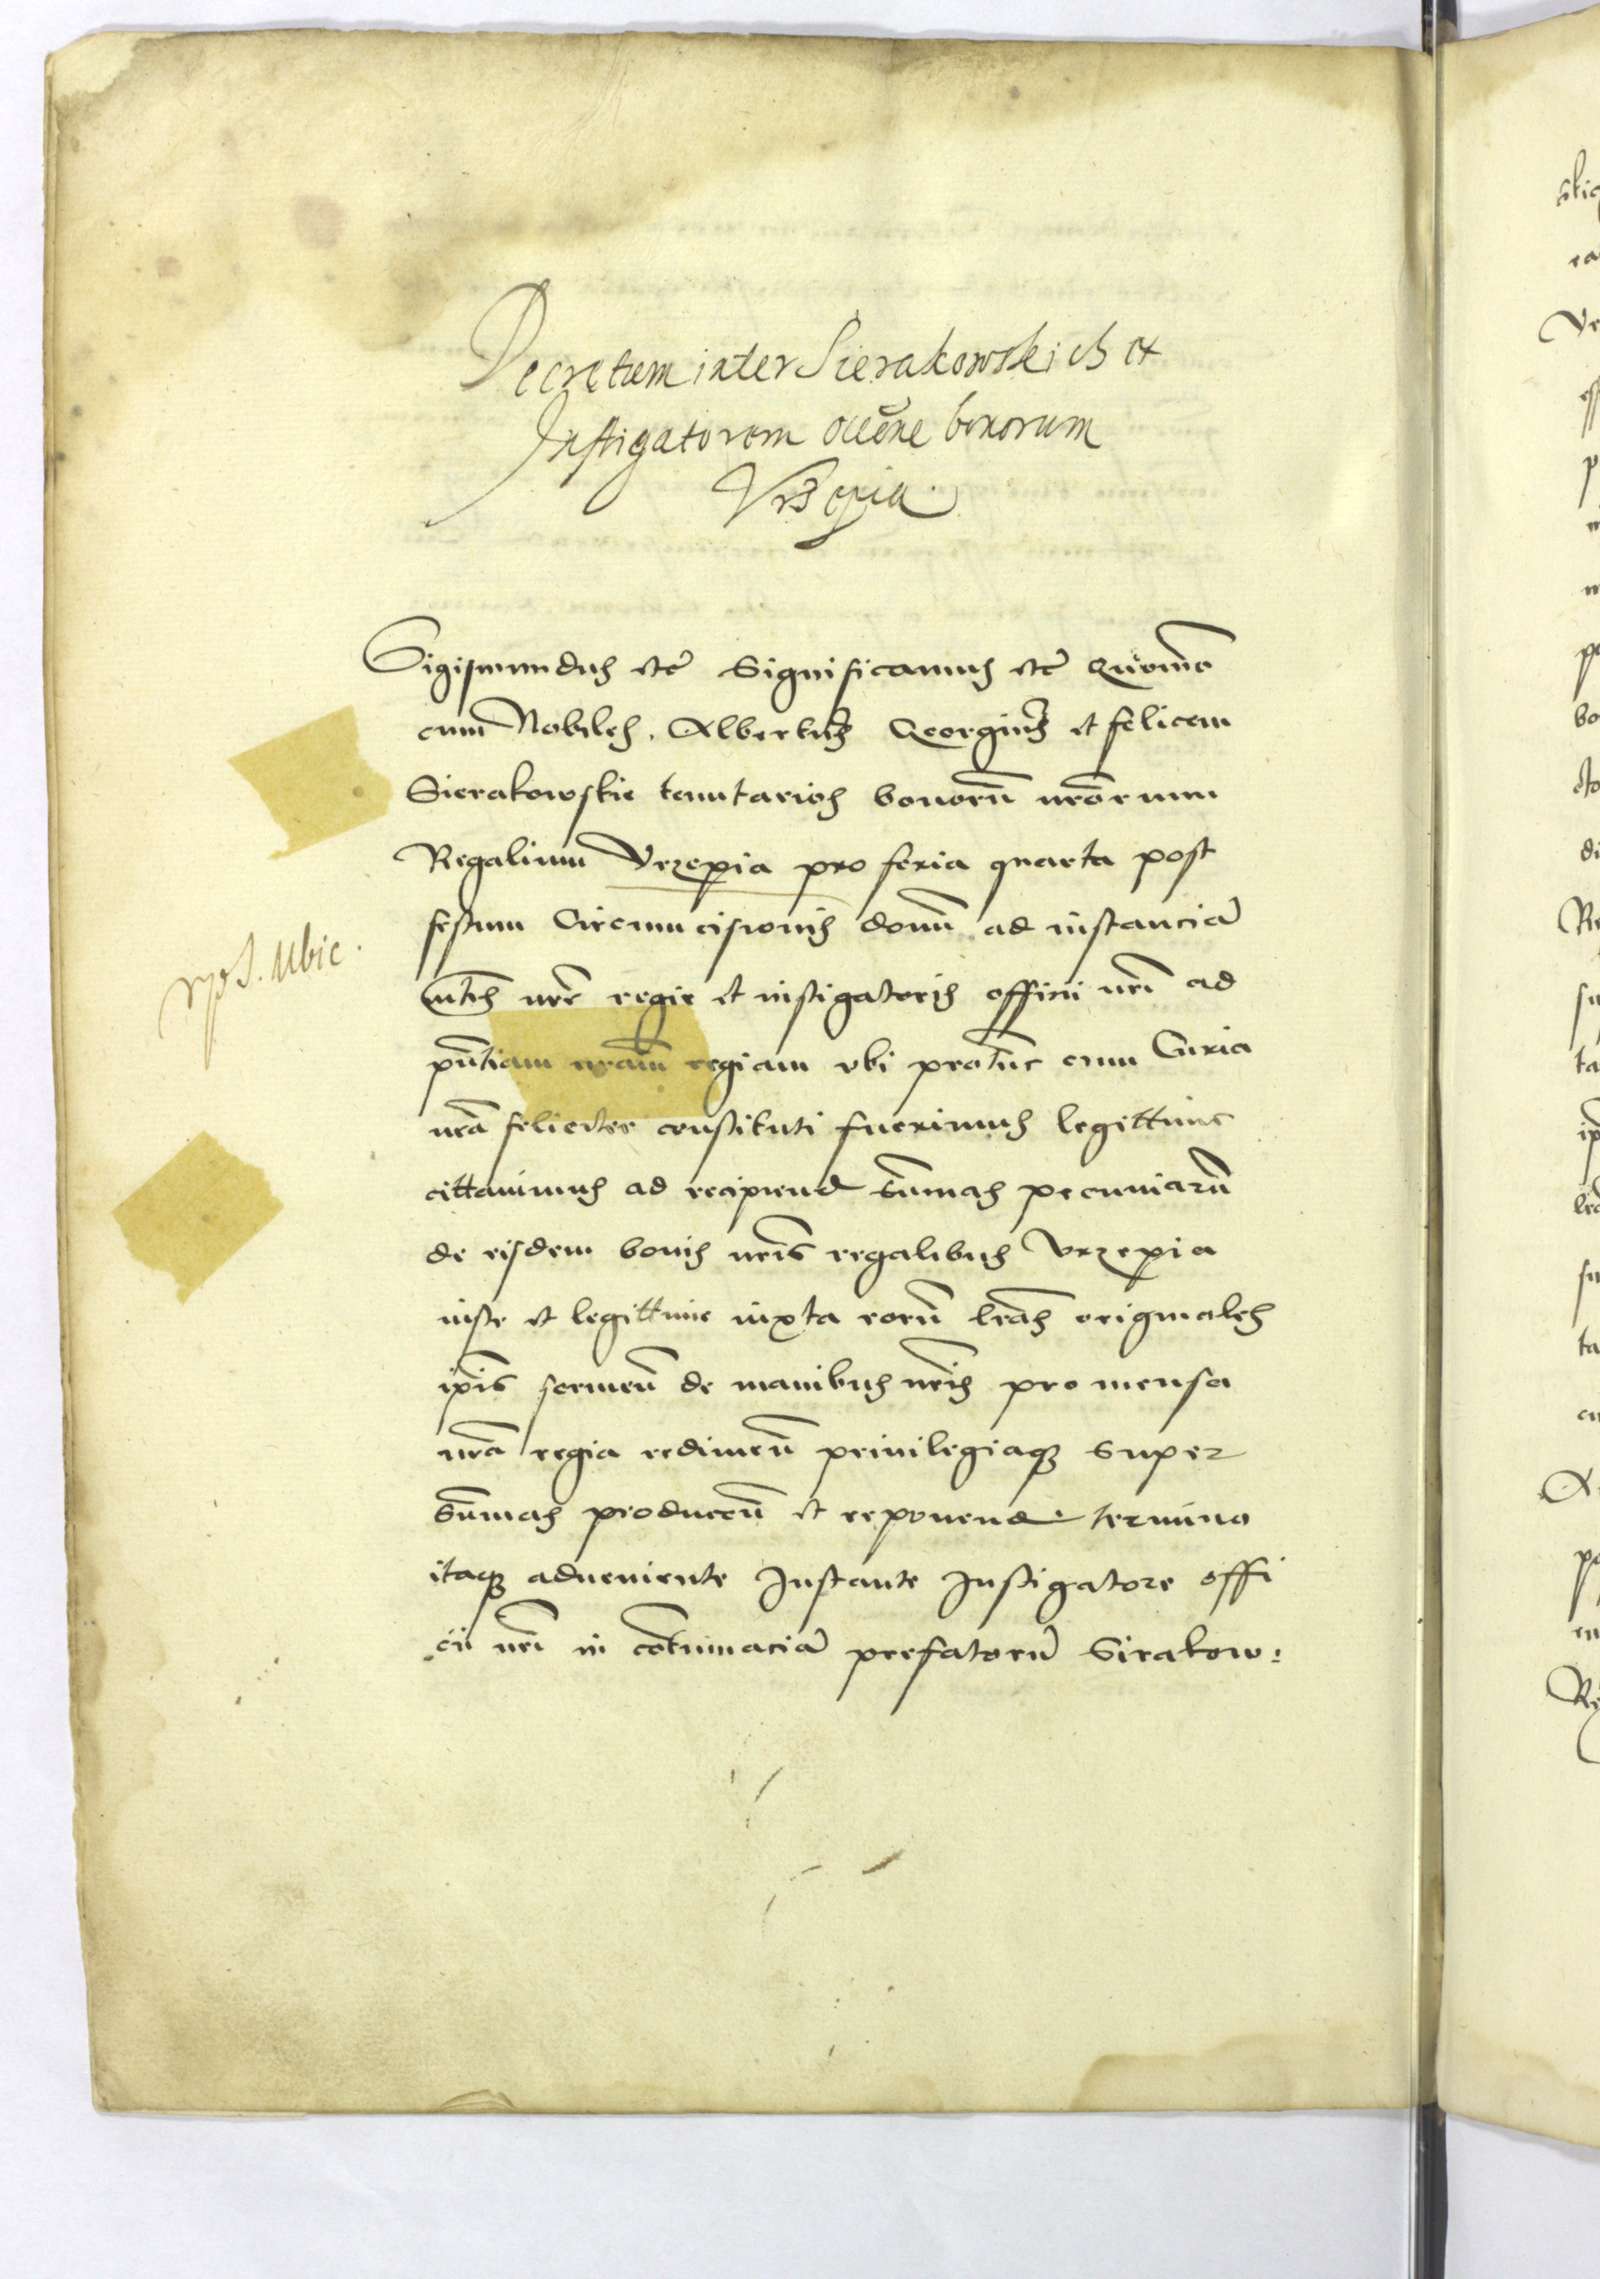 Decretum inter Sierakowskich et
Instigatorem occōne bonorum
Vrzepia.
Sigismundus etc Significamus etc Quomō
cum Nobiles. Albertū Georgiū et felicem
Sierakowskie tenutarios bonorū nrōrum
Regalium Vrzepia pro feria quarta post
festum Circumcisionis domī ad instanciā
nrē regie et instigatoris officii nrī ad
pn̄tiam nrām regiam vbi protūc cum Curia
nrā feliciter constituti fuerimus legittime
cittauimus ad recipiend sūmas pecuniarū
de eisdem bonis nrīs regalibus Vrzepia
iuste et legittime iuxta eorū lrās originales
ip̄is de manibus nrīs pro mensa
nrā regia redimen̄ priuilegiaq super
sūmas producen̄ et reponend. termino
itaq adueniente Instante Instigatore offi
cii nrī in cōtumaciā prefatorū Sirakow: